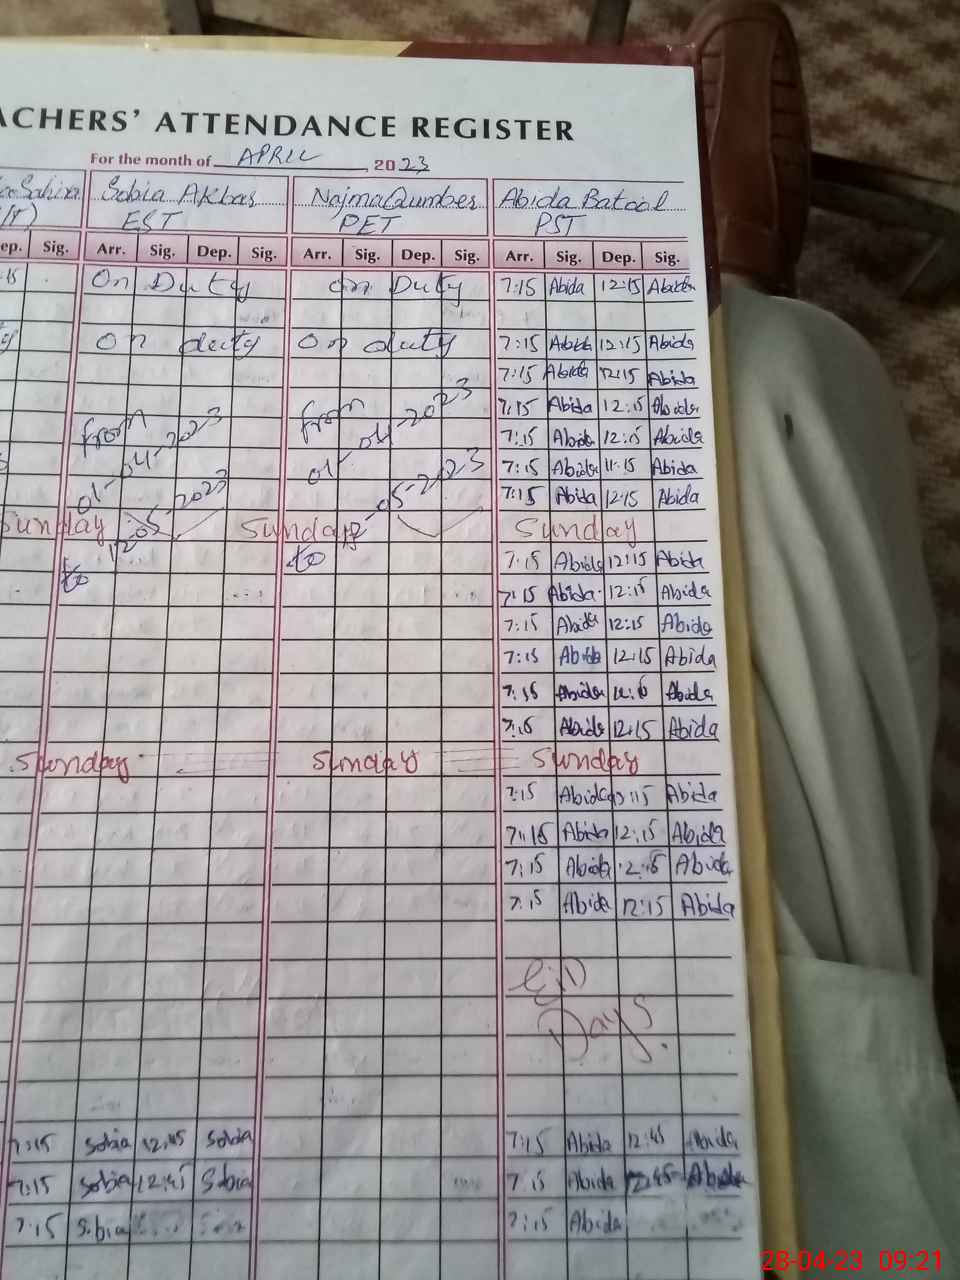 ACHERS' ATTENDANCE REGISTER
For the month of APRIL 2023
Sahira Sobia Akbar Najma Qumber Abida Batool
EST PET PST
ep. Sig. Arr. Sig. Dep. Sig. Arr. Sig. Dep. Sig. Arr. Sig. Dep. Sig.
On Duty on Duty 7:15 Abida 12:15 Abida
On duty On duty 7:15 Abida 12:15 Abida
7:15 Abida 12:15 Abida
from 01-04-2023 from 01-04-2023 7:15 Abida 12:15 Abida
7:15 Abida 12:15 Abida
7:15 Abida 11:15 Abida
to 12-05-2023 to 12-05-2023 7:15 Abida 12:15 Abida
Sunday Sunday Sunday
7:15 Abida 12:15 Abida
7:15 Abida 12:15 Abida
7:15 Abida 12:15 Abida
7:15 Abida 12:15 Abida
7:15 Abida Abida
7:15 Abida 12:15 Abida
Sunday Sunday Sunday
7:15 Abida 12:15 Abida
7:15 Abida 12:15 Abida
7:15 Abida 12:15 Abida
7:15 Abida 12:15 Abida
EiD
Days.
7:15 Sobia 12:45 Sobia 7:15 Abida 12:45 Abida
7:15 Sobia 12:45 Sobia 7:15 Abida 12:45 Abida
7:15 Sobia 7:15 Abida
28-04-23 09:21